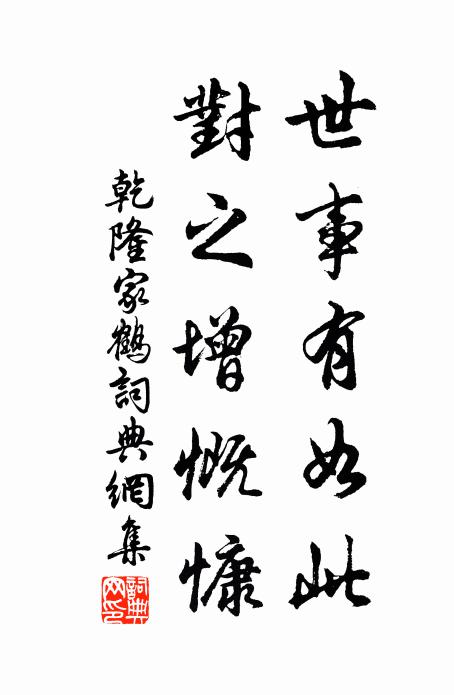 世事有如此
對之增慨慷
乾隆家鶴詞典網集
詞典網印